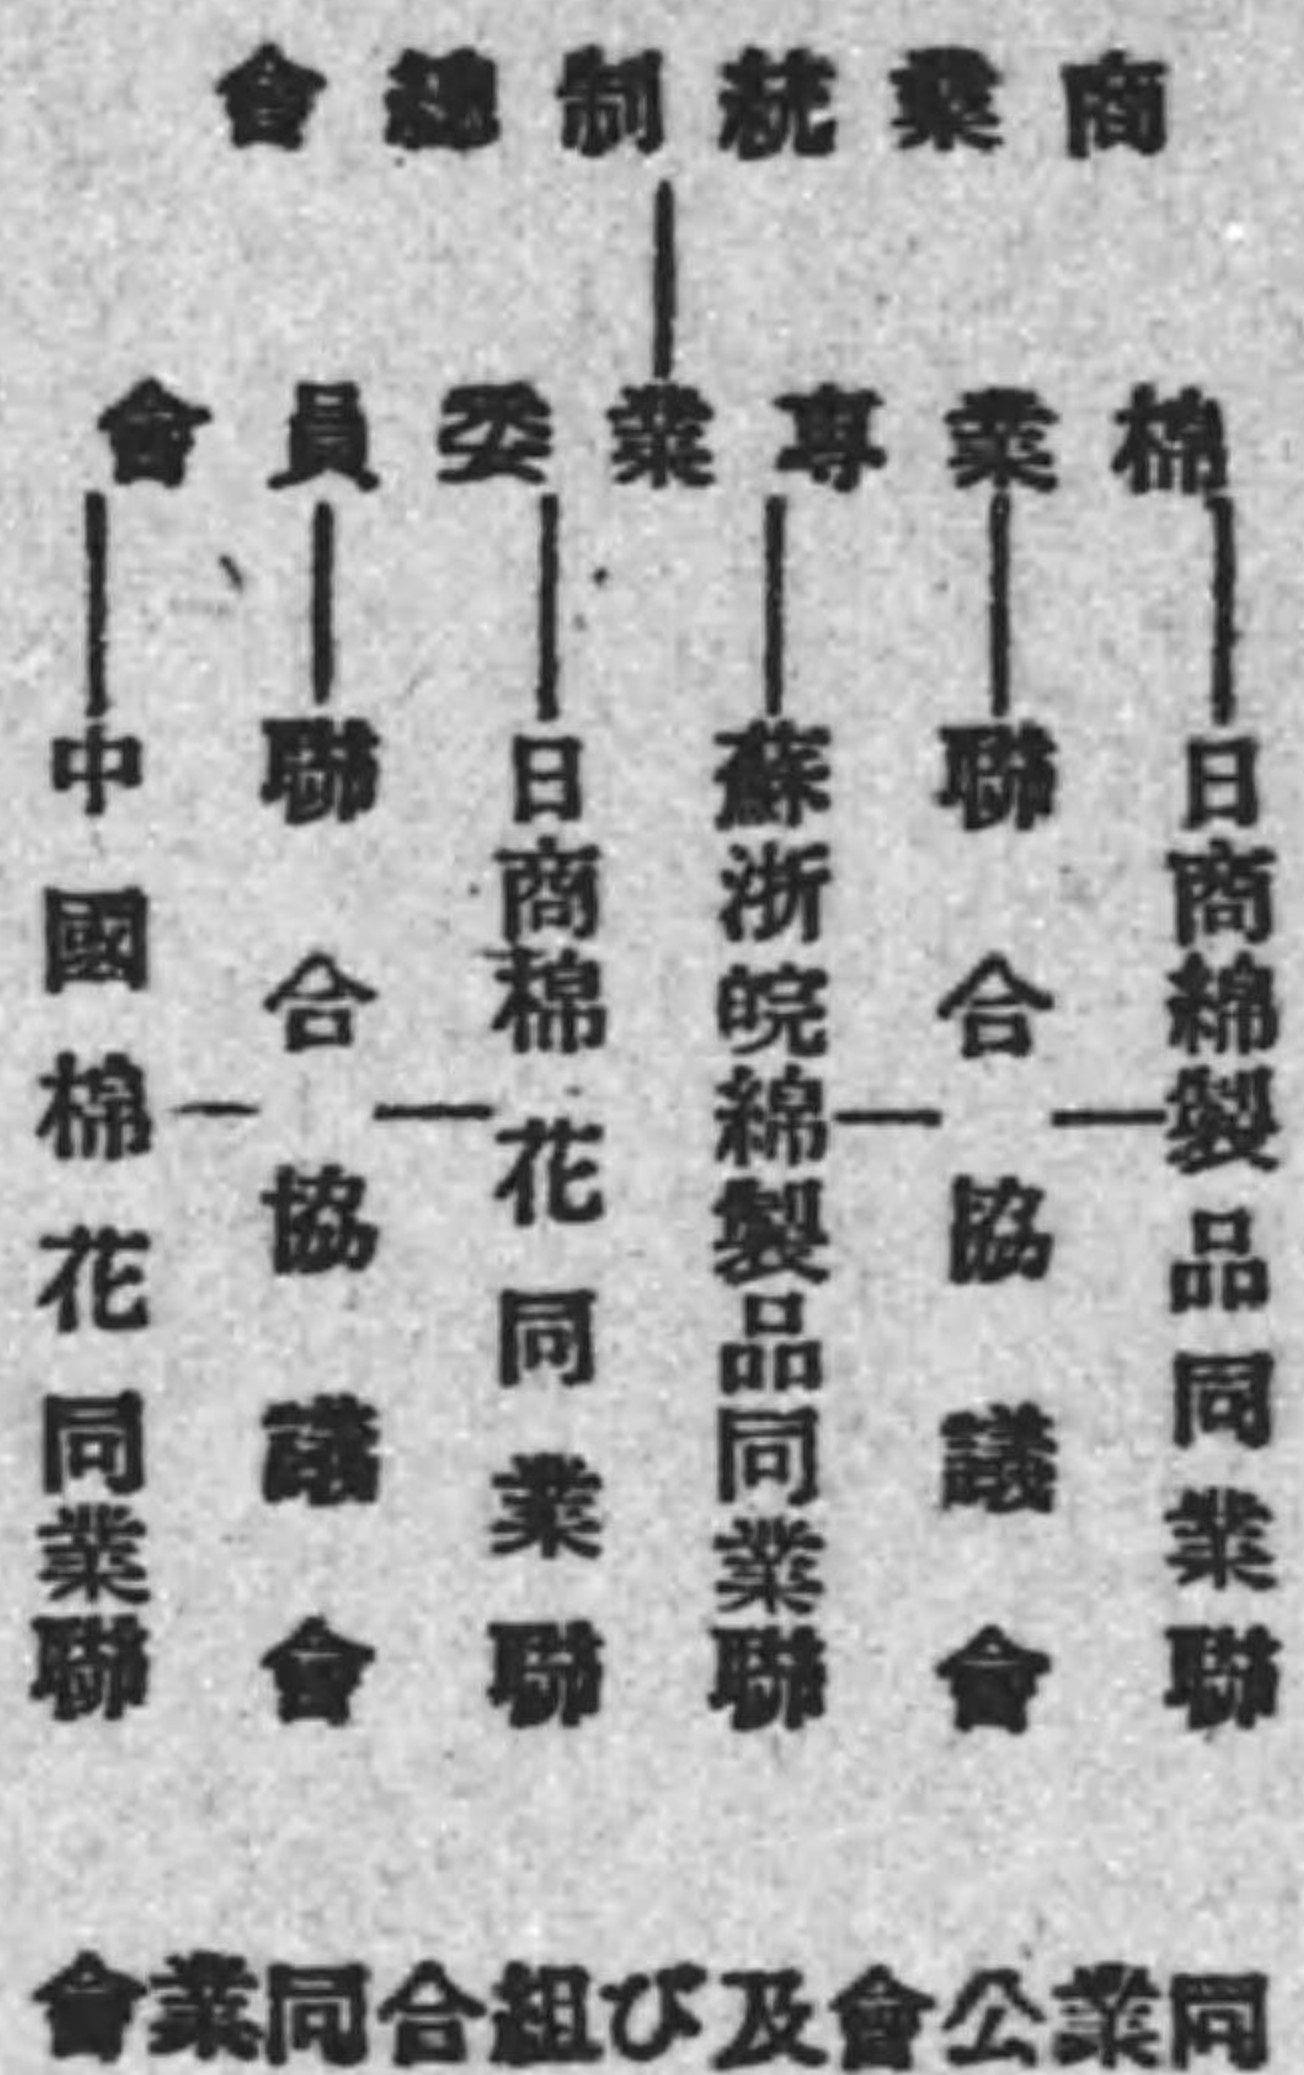 商業統制總會
棉業專業委員會
日商綿製品同業聯
聯合協議會
蘇浙皖綿製品同業聯
日商棉花同業聯
聯合協議會
中國棉花同業聯
同業公會及び組合同業會